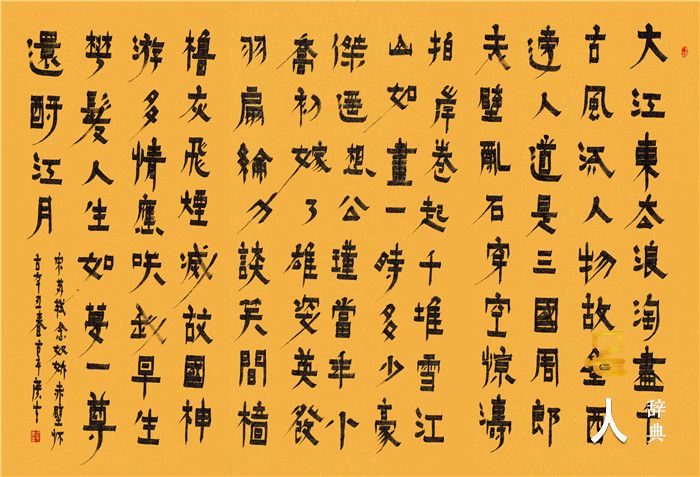 大江東去浪淘盡千
古風流人物故壘西
邊人道是三國周郎
赤壁亂石穿空驚濤
拍岸卷起千堆雪江
山如畫一時多少豪
傑遥想公瑾當年小
喬初嫁了雄姿英發
羽扇綸巾談笑間檣
櫓灰飛煙滅故國神
游多情應笑我早生
華髮人生如夢一尊
還酹江月
宋蘇軾念奴嬌赤壁怀
古辛丑春
人
辞典